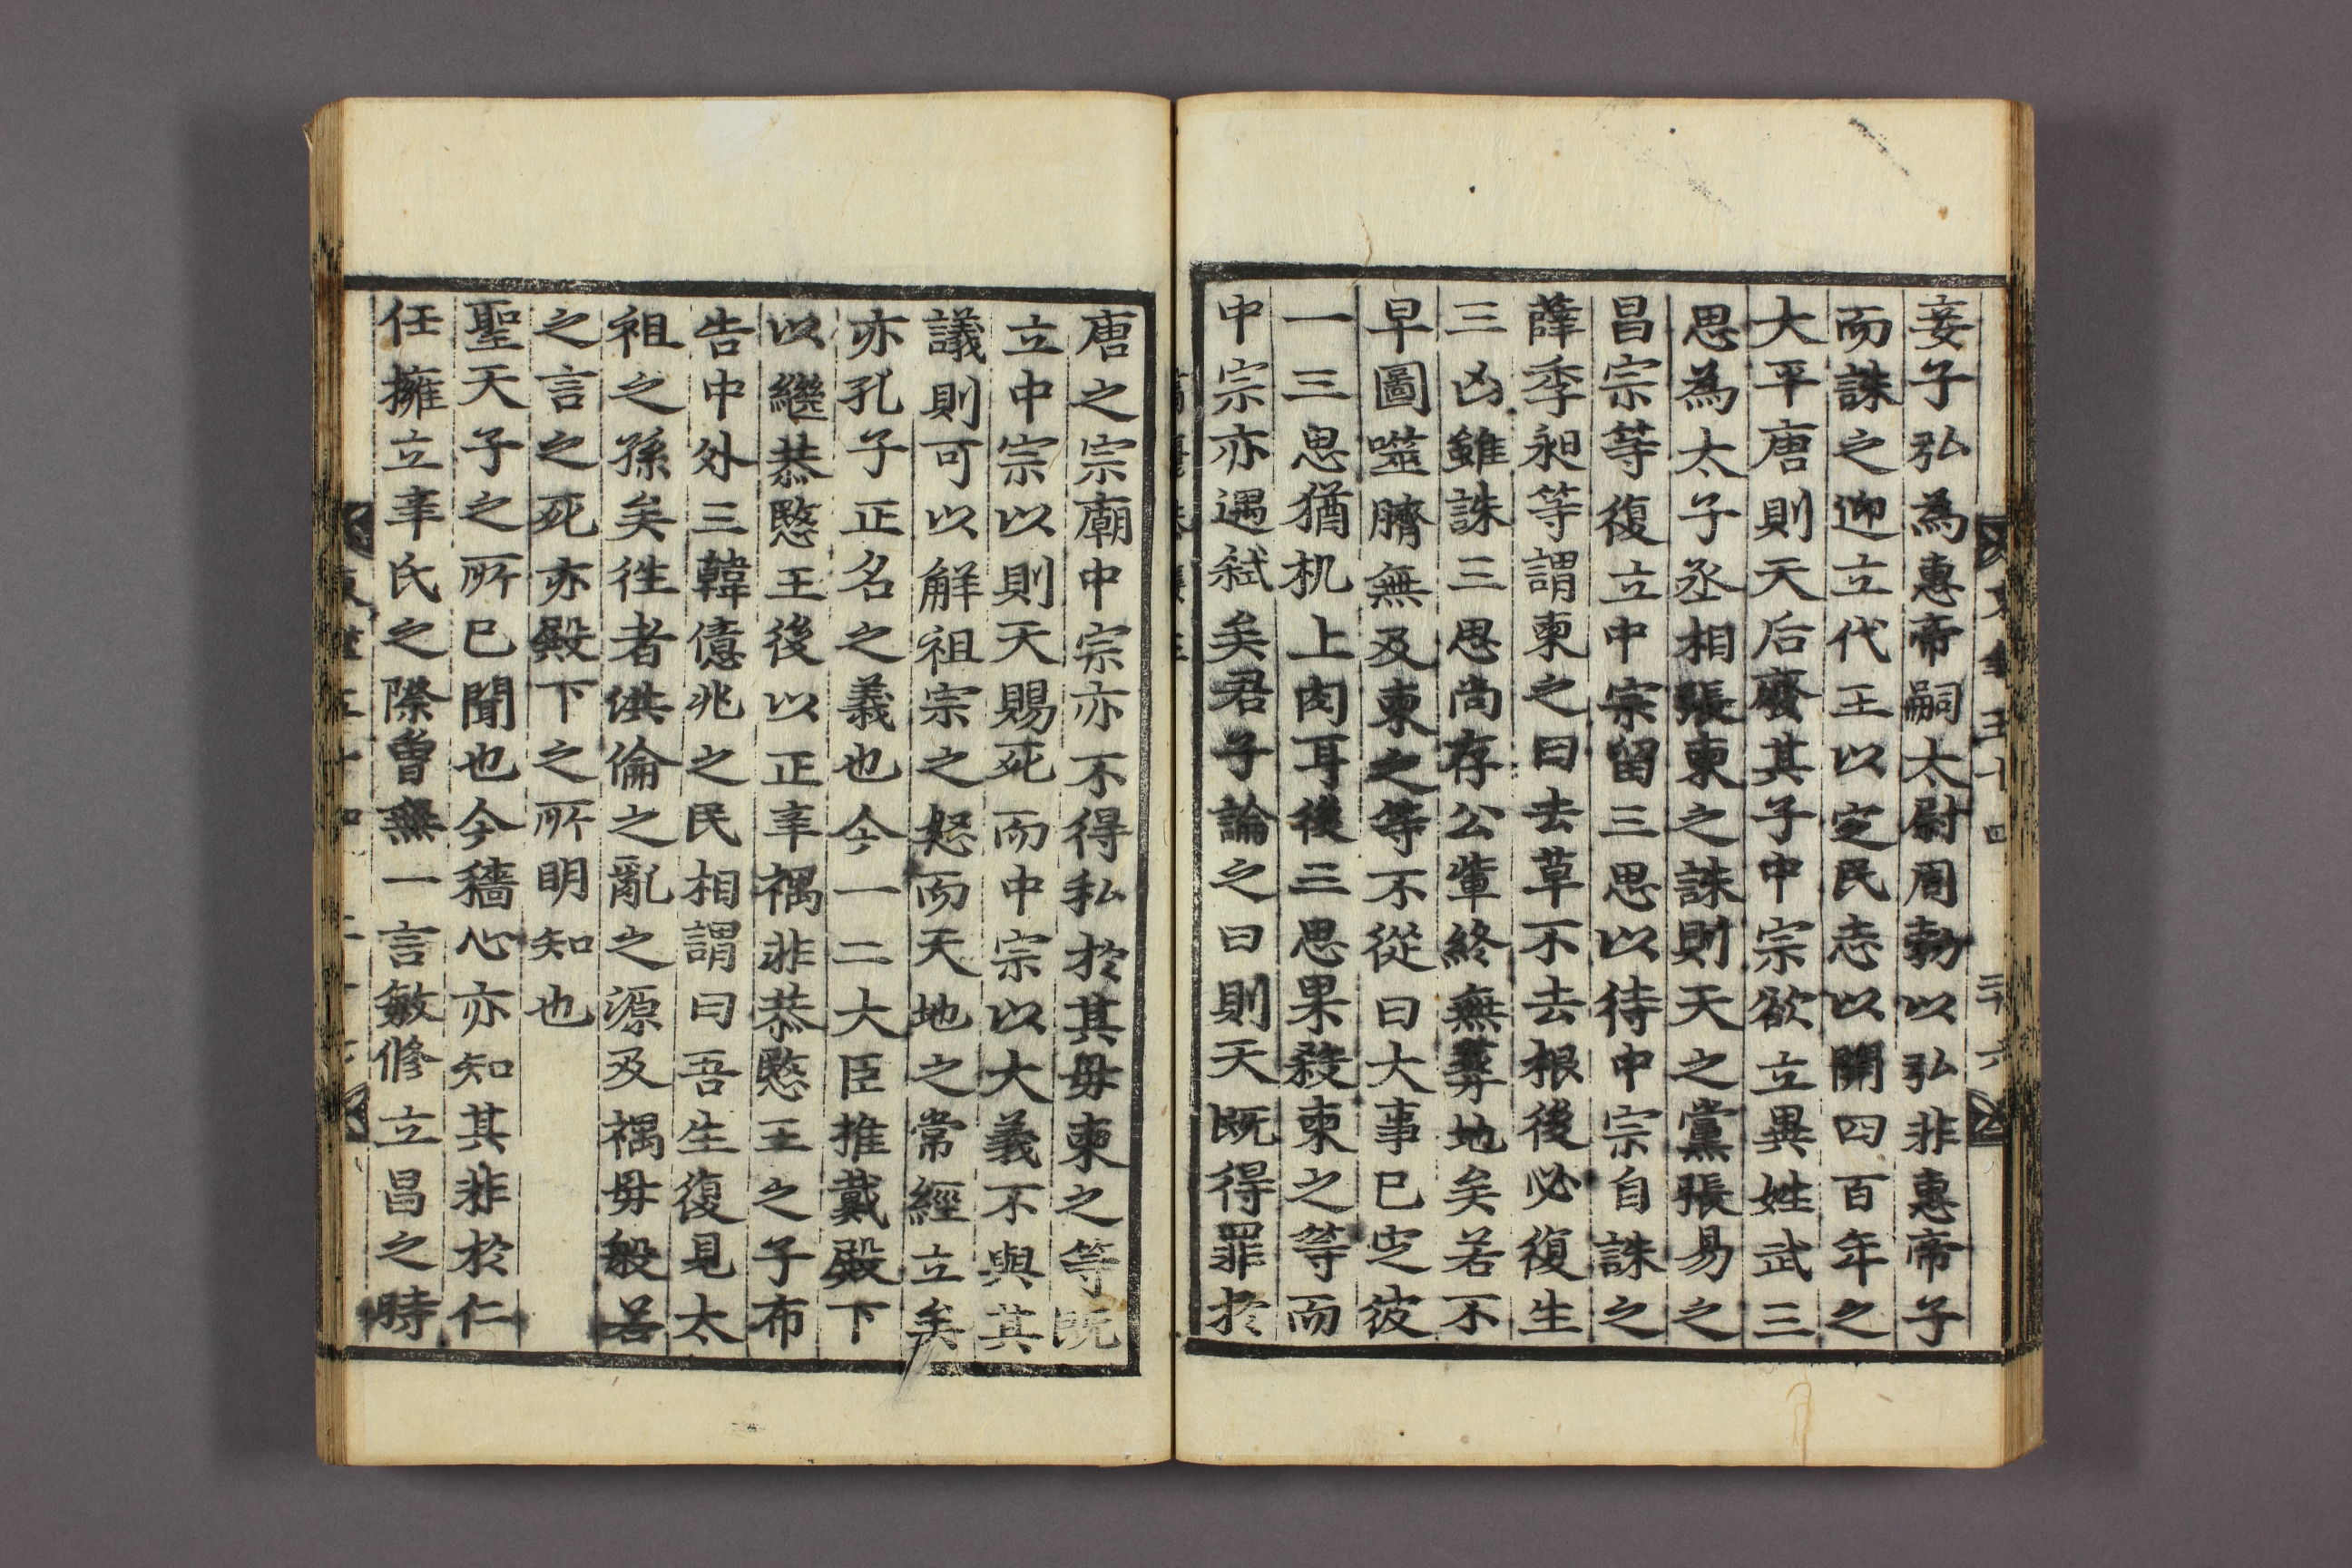 妾子弘為惠帝嗣太尉周勃以弘非惠帝子
而誅之迎立代王以定民志以開四百年之
大平唐則天后廢其子中宗欲立異姓武三
思為太子丞相張柬之誅則天之黨張易之
昌宗等復立中宗留三思以待中宗自誅之
薛季昶等謂柬之曰去草不去根後必復生
三凶雖誅三思尚存公輩終無葬地矣若不
早圖噬臍無及柬之等不從曰大事已定彼
一三思猶机上肉耳後三思果殺柬之等而
中宗亦遇弑矣君子論之曰則天既得罪於
唐之宗廟中宗亦不得私於其母柬之等既
立中宗以則天賜死而中宗以大義不與其
議則可以解祖宗之怒而天地之常經立矣
亦孔子正名之義也今一二大臣推戴殿下
以繼恭愍王後以正辛禑非恭愍王之子布
告中外三韓億兆之民相謂曰吾生復見太
祖之孫矣徃者洪倫之亂之源及禑母般若
之言之死亦殿下之所明知也
聖天子之所已聞也今穡心亦知其非於仁
任擁立辛氏之際曾無一言敏修立昌之時